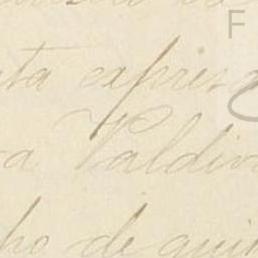 F
ta expres
a Valdiv
ho de quin